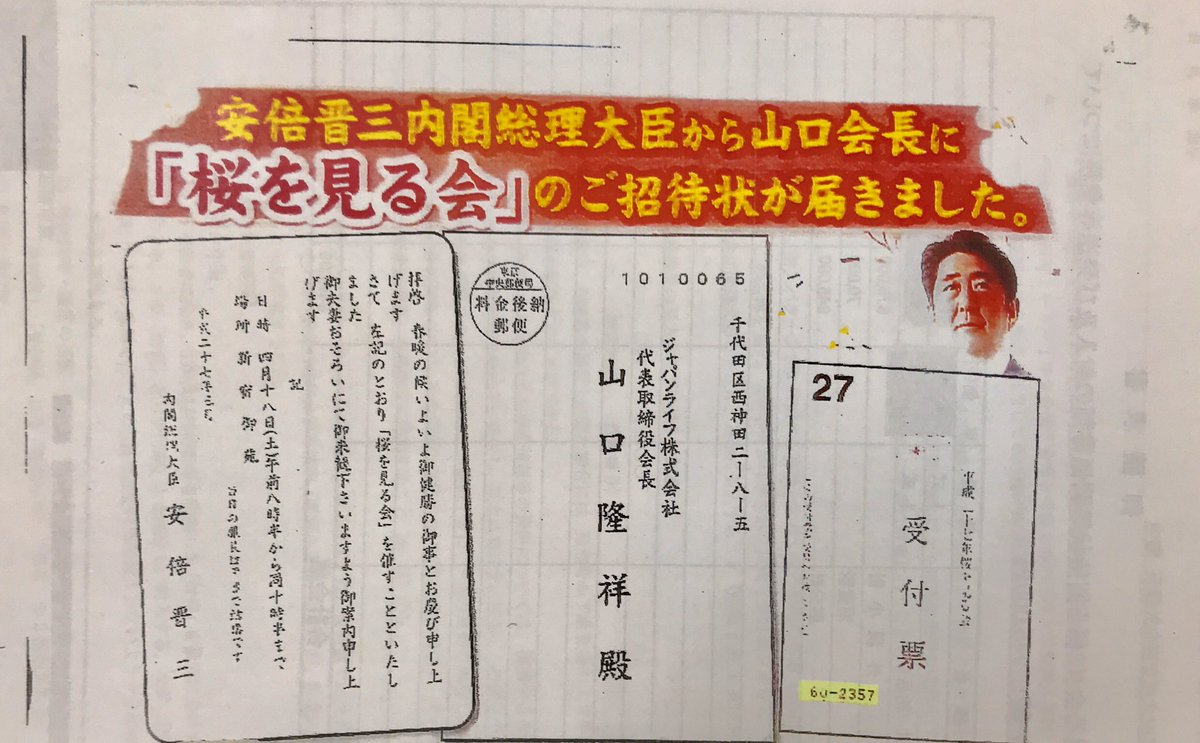 安倍晋三内閣総理大臣から山口会長に
「桜を見る会」のご招待状が届きました。
拝啓 春暖の候いよいよ御健勝の御事とお慶び申し上
げます
さて 左記のとおり「桜を見る会」を催すことといたし
ました
御夫妻おそろいにて御来観下さいますよう御案内申し上
げます
記
日時 四月十八日(土)午前八時半から同十時半まで
場所 新宿御苑
平成二十七年三月
内閣総理大臣 安倍晋三
東京
中央郵便局
料金後納
郵便
1010065
千代田区西神田二ー八ー五
ジャパンライフ株式会社
代表取締役会長
山口隆祥殿
27
受付票
60-2357